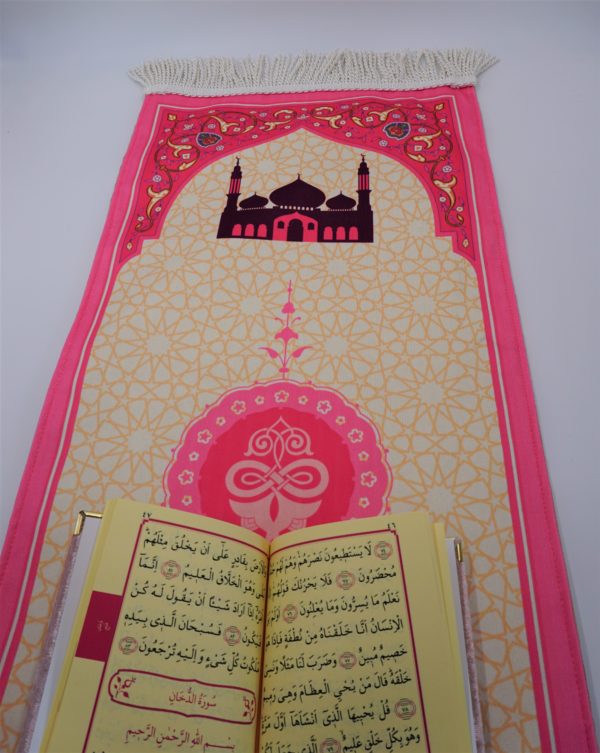 ٤٦
لَا يَسْتَطِيعُونَ نَصْرَهُمْ وَهُمْ لَهُمْ
مُحْضَرُونَ فَلَا يَحْزُنْكَ قَوْلُهُمْ
نَعْلَمُ مَا يُسِرُّونَ وَمَا يُعْلِنُونَ اَوَلَمْ
الْاِنْسَانُ اَنَّا خَلَقْنَاهُ مِنْ نُطْفَةٍ فَاِذَا
خَصِيمٌ مُبِينٌ وَضَرَبَ لَنَا مَثَلًا وَنَسِىَ
خَلْقَهُ قَالَ مَنْ يُحْيِى الْعِظَامَ وَهِىَ رَمِيمٌ
قُلْ يُحْيِيهَا الَّذِى اَنْشَاَهَا اَوَّلَ
وَهُوَ بِكُلِّ خَلْقٍ عَلِيمٌ
٤٧
وَالْاَرْضَ بِقَادِرٍ عَلٰى اَنْ يَخْلُقَ مِثْلَهُمْ
بَلٰى وَهُوَ الْخَلَّاقُ الْعَلِيمُ اِنَّمَا
اَمْرُهُ اِذَا اَرَادَ شَيْئًا اَنْ يَقُولَ لَهُ كُنْ
فَيَكُونُ فَسُبْحَانَ الَّذِى بِيَدِهِ
مَلَكُوتُ كُلِّ شَىْءٍ وَاِلَيْهِ تُرْجَعُونَ
سُورَةُ الدُّخَانِ
بِسْمِ اللهِ الرَّحْمٰنِ الرَّحِيمِ